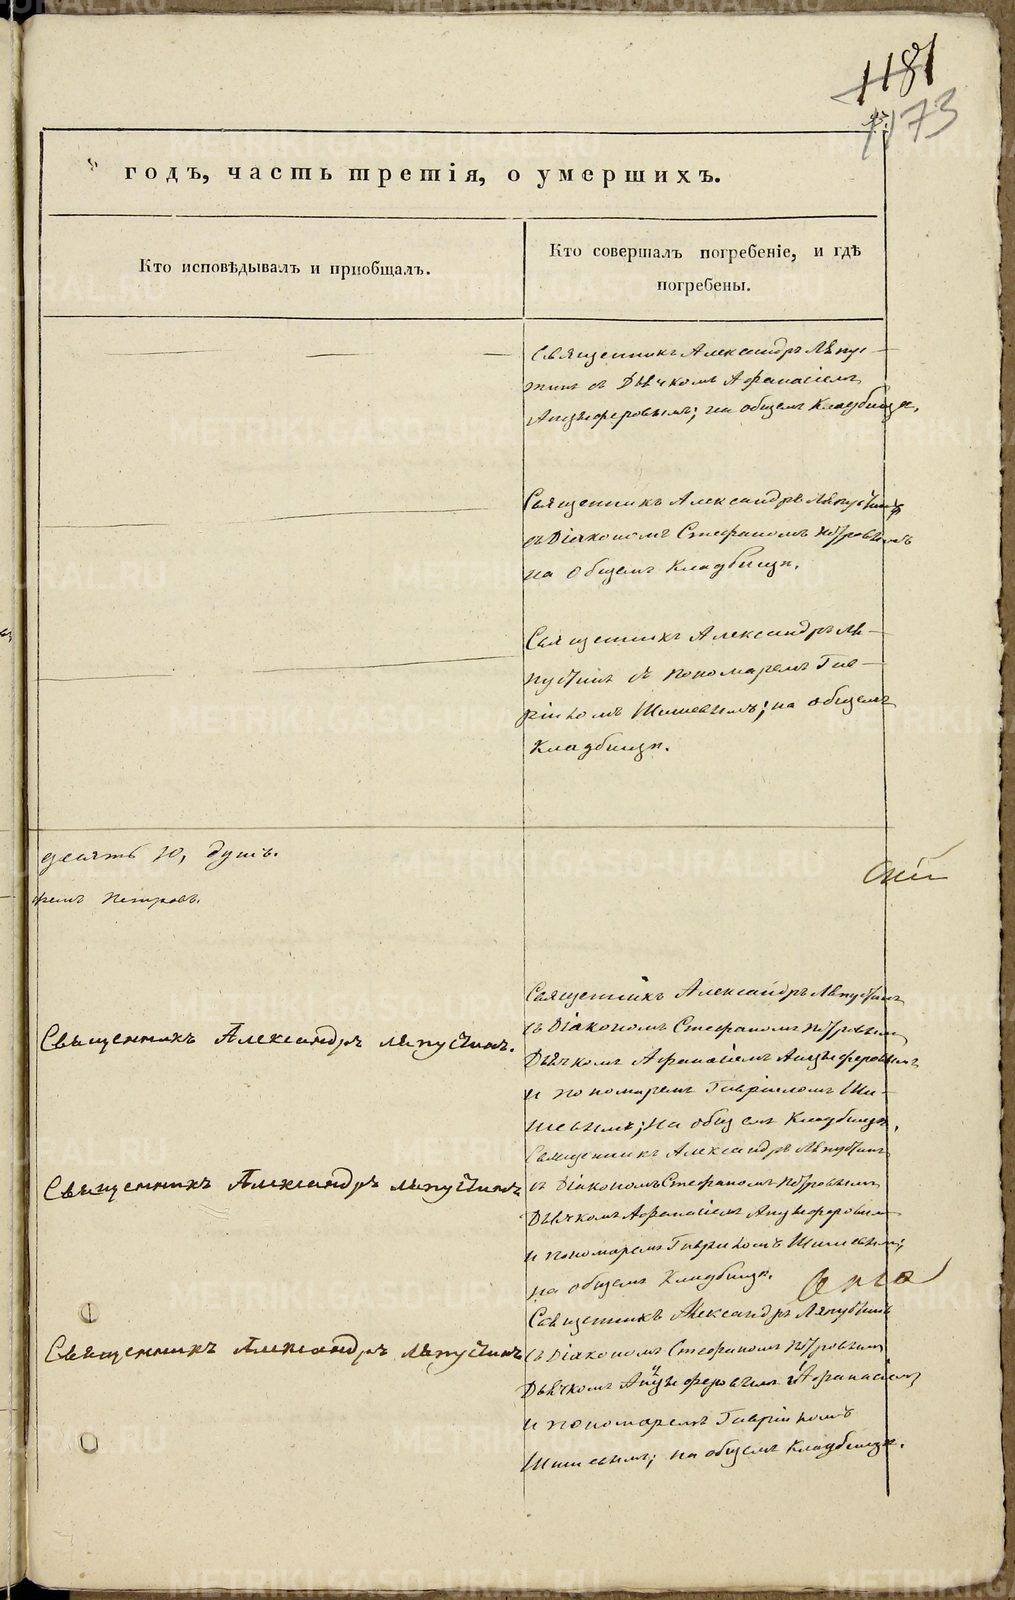 1181
1173
годъ, часть третія, о умершихъ.
Кто исповѣдывалъ и пріобщалъ.
Кто совершалъ погребеніе, и гдѣ
погребены.
Священникъ Александръ Ляпус-
тинъ съ Дьячкомъ Афанасіемъ
Анцыферовымъ; на общемъ Кладбищѣ.
Священникъ Александръ Ляпустинъ
съ Діакономъ Стефаномъ Петровымъ
на общемъ Кладбищѣ.
Священникъ Александръ Ля-
пустинъ съ пономаремъ Гав-
ріиломъ Шишевымъ; на общемъ
Кладбищѣ.
десять 10, душъ.
Петровъ.
Священникъ Александръ Ляпустинъ.
Священникъ Александръ Ляпустинъ
съ Діакономъ Стефаномъ Петровымъ
Дьячкомъ Афанасіемъ Анцыферовымъ
и пономаремъ Гавріиломъ Ши-
шевымъ; на общемъ Кладбищѣ.
Священникъ Александръ Ляпустинъ
Священникъ Александръ Ляпустинъ
съ Діакономъ Стефаномъ Петровымъ
Дьячкомъ Афанасіемъ Анцыферовымъ
и пономаремъ Гавріиломъ Шишевымъ;
на общемъ Кладбищѣ.
Священникъ Александръ Ляпустинъ
Священникъ Александръ Ляпустинъ
съ Діакономъ Стефаномъ Петровымъ
Дьячкомъ Анцыферовымъ Афанасіемъ
и пономаремъ Гавріиломъ
Шишевымъ; на общемъ Кладбищѣ.
METRIKI.GASO-URAL.RU